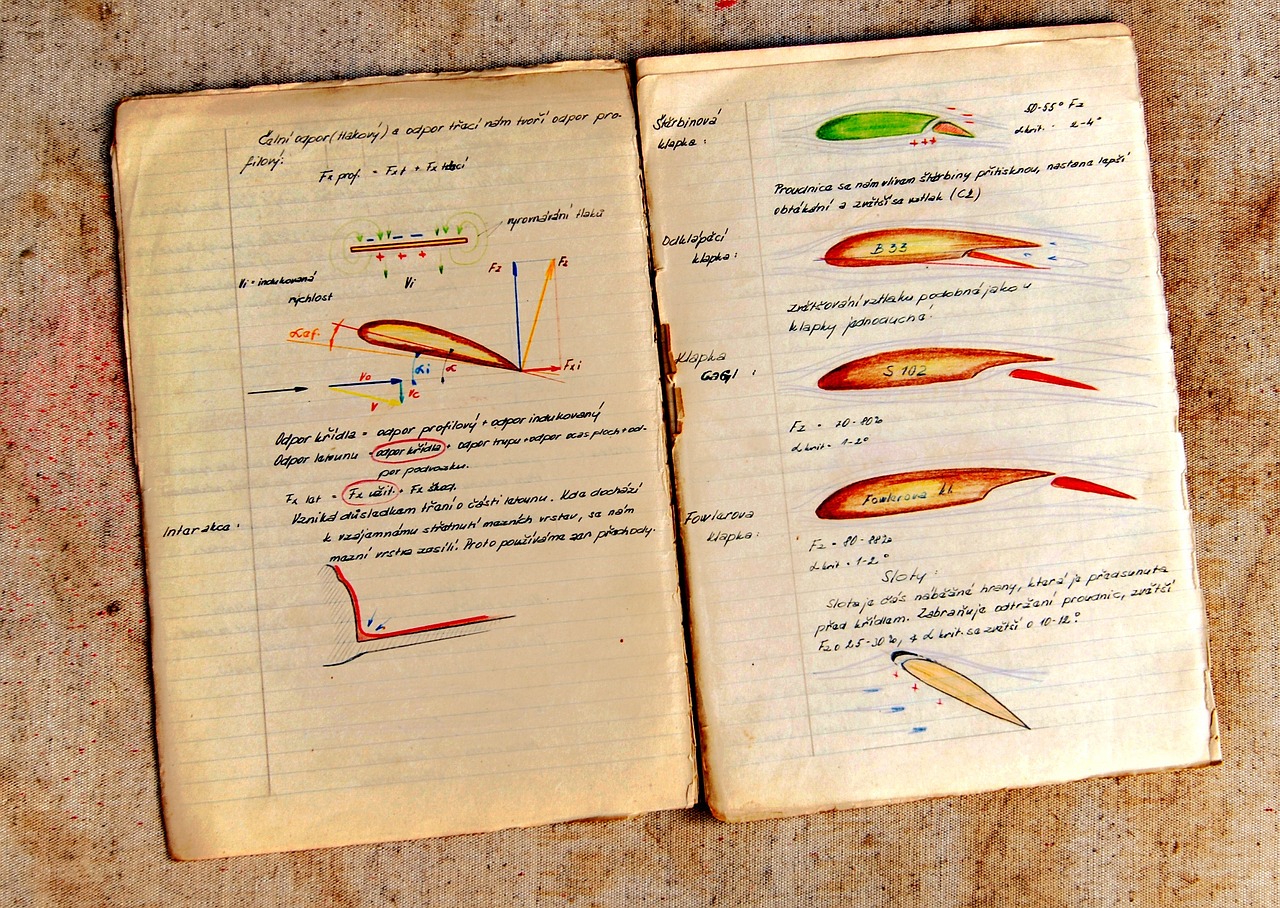 Čelní odpor (tlakový) a odpor třecí nám tvoří odpor pro-
filový:
Fx prof. = Fxt + Fx třecí
vyrovnávání tlaků
Vi = indukovaná
rychlost
Vi
Fz
Fz
αef.
αi
α
Fxi
Vo
Vc
V
Odpor křídla = odpor profilový + odpor indukovaný
Odpor letounu = odpor křídla + odpor trupu + odpor ocas ploch + od-
por podvozku.
Fx let = Fx užit. + Fx škod.
Interakce:
Vzniká důsledkem tření o části letounu. Kde dochází
k vzájemnému střetnutí mezních vrstev, se nám
mezní vrstva zesílí. Proto používáme přechody.
Štěrbinová
klapka:
50-55° Fz
αkrit. 2-4°
Proudnice se nám vlivem štěrbiny přitisknou, nastane lepší
obtékání a zvětší se vztlak (Cz)
Odklápěcí
klapka:
B 33
zvětšování vztlaku podobné jako u
klapky jednoduché.
Klapka
GaGl :
S 102
Fz = 70-80%
αkrit = 1-2°
Fowlerova
klapka:
Fowlerova kl.
Fz = 80-88%
αkrit = 1-2°
Sloty:
Slot je část náběžné hrany, která je předsunuta
před křídlem. Zabraňuje odtržení proudnic, zvětší
Fz o 25-30%, αkrit. se zvětší o 10-12°